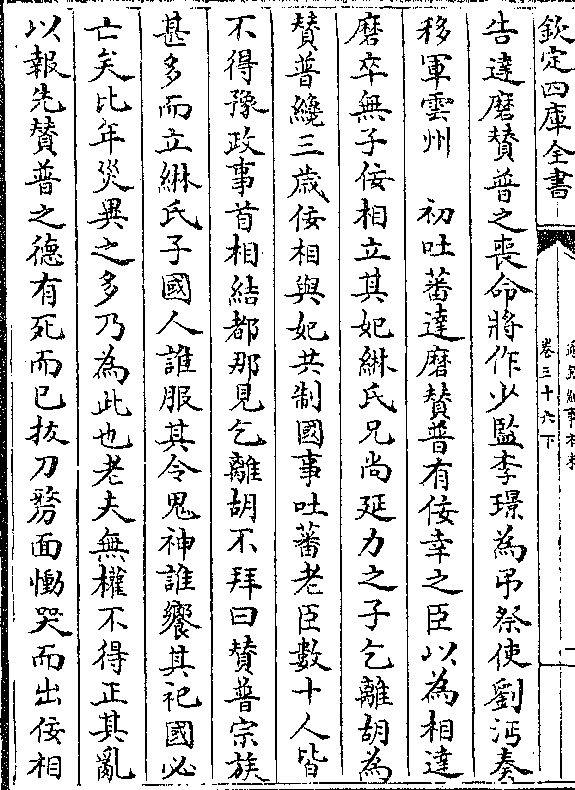 欽定四庫全書
通鑑紀事本末
卷三十六下
告達磨贊普之喪命將作少監李璟為弔祭使劉沔奏
移軍雲州　初吐蕃達磨贊普有佞幸之臣以為相達
磨卒無子佞相立其妃綝氏兄尚延力之子乞離胡為
贊普纔三歳佞相與妃共制國事吐蕃老臣數十人皆
不得豫政事首相結都那見乞離胡不拜曰贊普宗族
甚多而立綝氏子國人誰服其令鬼神誰饗其祀國必
亡矣比年災異之多乃為此也老夫無權不得正其亂
以報先贊普之德有死而已拔刀剺面慟哭而出佞相